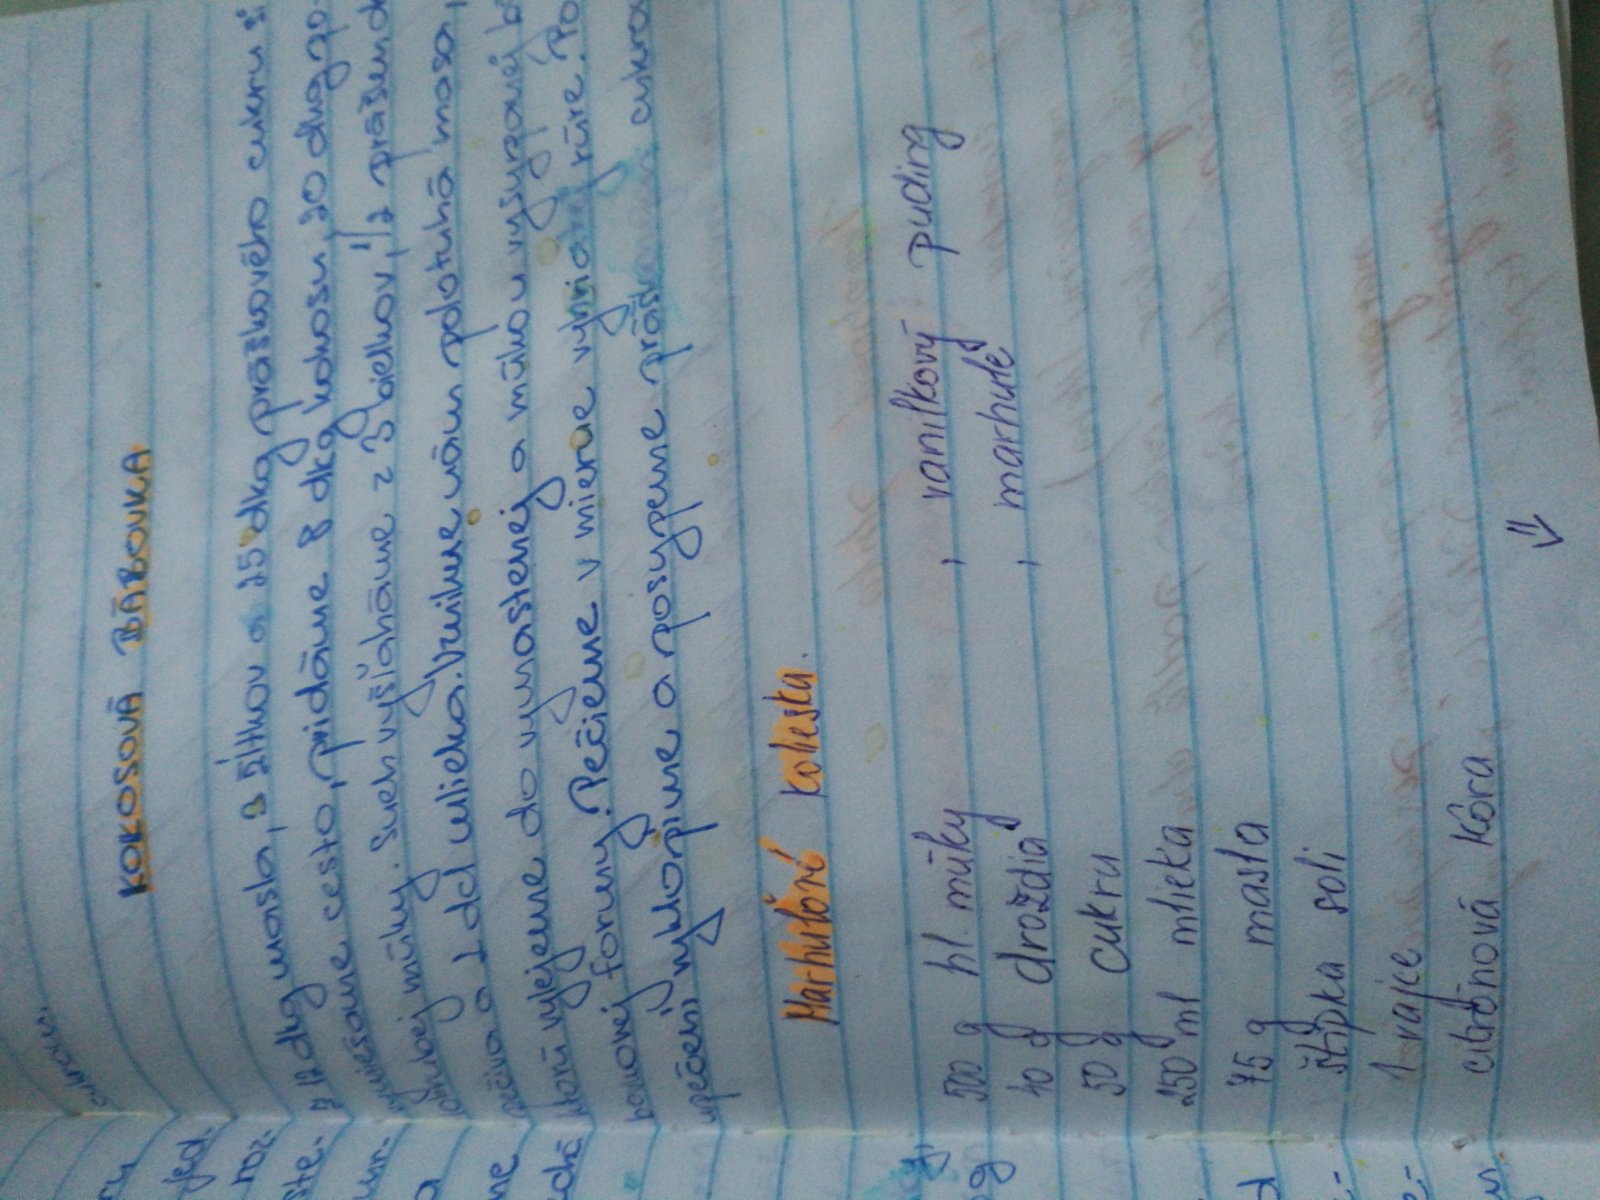 cukrom.
KOKOSOVÁ BÁBOVKA
Z 12 dkg masla, 3 žĺtkov a 25 dkg práškového cukru
vymiešame cesto, pridáme 8 dkg kokosu, 20 dkg po-
hrubej múky. Sneh vyšľaháme z 3 bielkov, 1/2 prášku do
pečiva a 2 dcl mlieka. Vznikne nám polotuhá masa,
ktorú vylejeme do vymastenej a múkou vysypanej
bovovej formy. Pečieme v mierne vyhriatej rúre. Po
upečení vyklopíme a posypeme práškovým cukrom
Marhuľové kolieska.
500 g hl. múky , vanilkový puding
40 g droždia , marhule
50 g cukru
250 ml mlieka
75 g masla
štipka soli
1 vajce
citrónová kôra
⇓